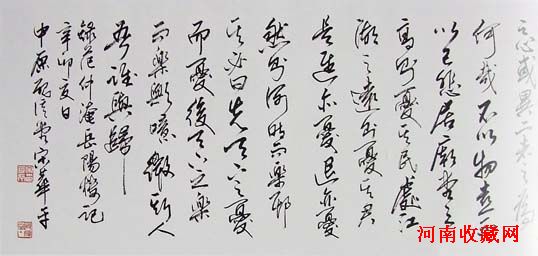 之心或異二者之為
何哉不以物喜不
以己悲居廟堂之
高則憂其民處江
湖之遠則憂其君
是進亦憂退亦憂
然則何時而樂耶
其必曰先天下之憂
而憂後天下之樂
而樂歟噫微斯人
吾誰與歸
錄范仲淹岳陽樓記
辛卯夏日
中原 宋華平
河南收藏网